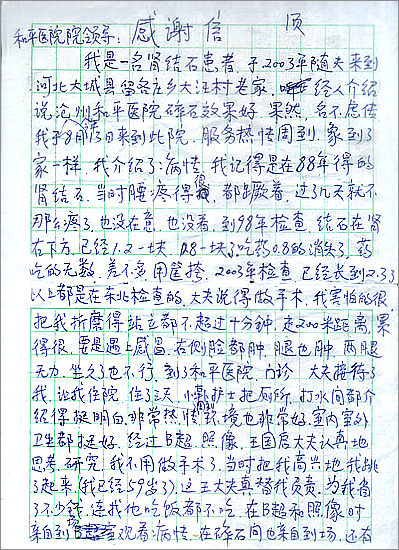 感谢信 页
和平医院院领导:
我是一名肾结石患者,于2003年随夫来到
河北大城县留各庄乡大汪村老家,经人介绍
说沧州和平医院碎石效果好。果然,名不虚传
我于8月13日来到此院,服务热情周到,象到了
家一样,我介绍了病情,我记得是在88年得的
肾结石,当时腰疼得很,都蹶着,过了几天就不
那么疼了,也没在意,也没看,到98年检查,结石在肾
右下方,已经1.2一块,0.8一块了吃药0.8的消失了,药
吃的无数,差不多用筐挎,2003年检查,已经长到2.33
以上都是在东北检查的,大夫说得做手术,我害怕的很
把我折磨得站立都不超过十分钟,走200米距离,累
得很,要是遇上感冒,右侧脸都肿,腿也肿,两腿
无力,坐久了也不行,到了和平医院,门诊 大夫接待了
我,让我住院,住了三天,小护士把厕所,打水间都介
绍得挺明白,非常热情周到环境也非常好,室内室外
卫生都挺好,经过B超,照像,王国居大夫认真地
思考,研究,我不用做手术了,当时把我高兴地我跳
了起来(我已经59岁了),这王大夫真替我负责,为我省
了不少钱,连我他吃饭都不吃,在B超和照像时
亲自到场观看病情,在碎石间也亲自到场,还有